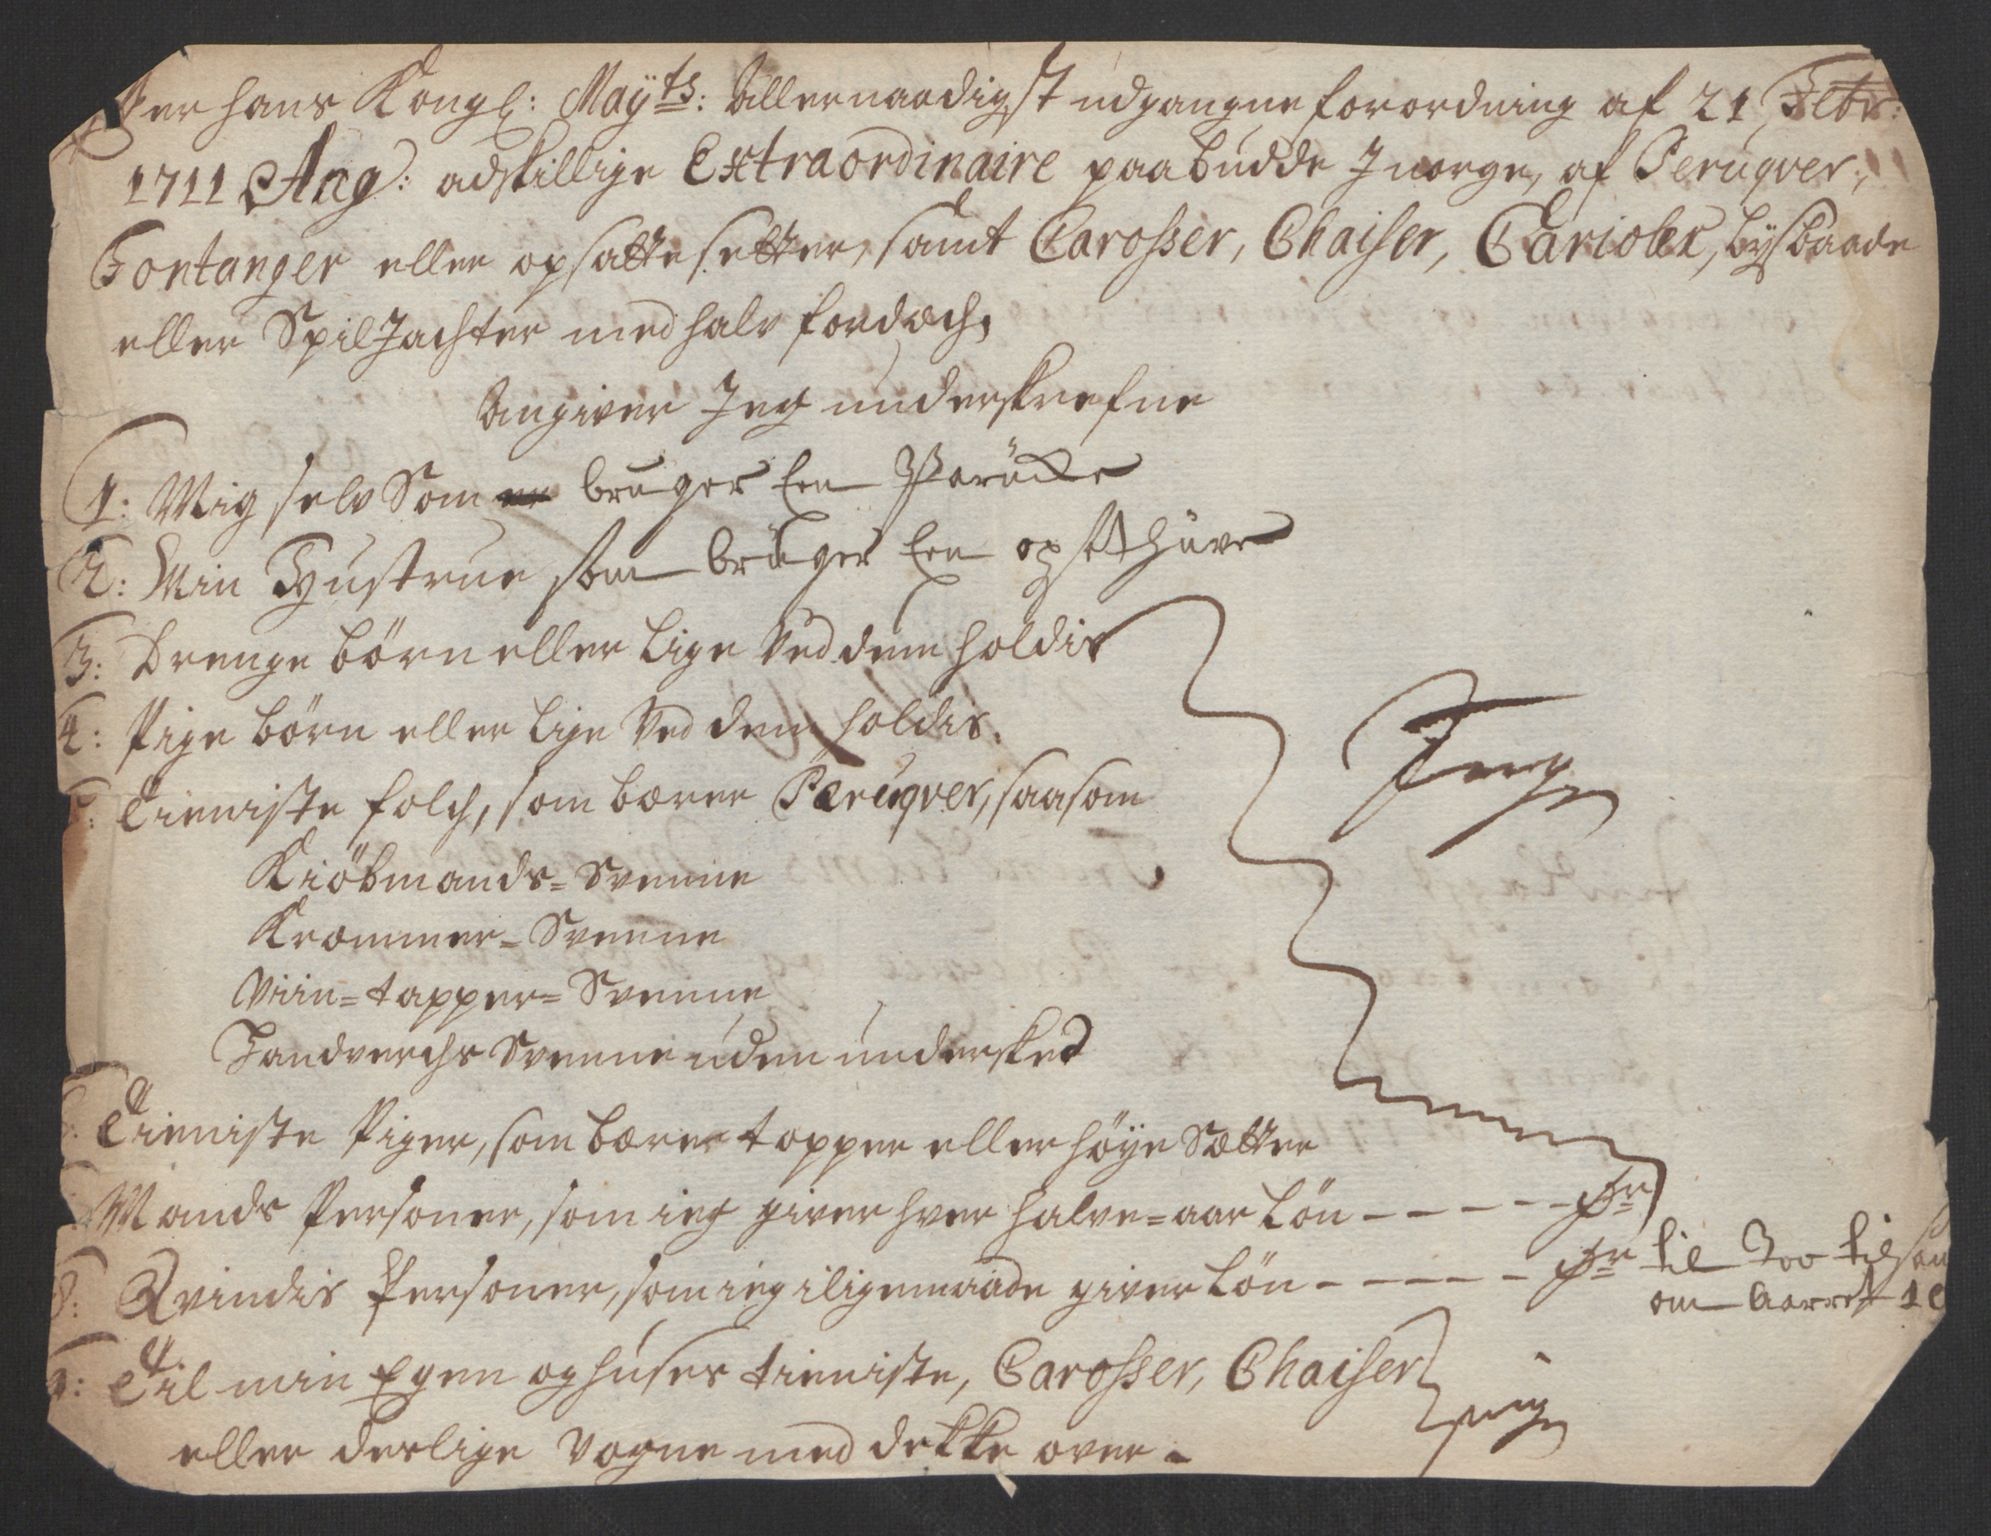 Efter hans Kongl: Mayts: Allernaadigst udgangne forordning af 21 Febr:
1711 Ang: adskillige Extraordinaire paabudde I Norge, af Peruqver,
Fontanger eller opsatte setter, samt Carosser, Chaiser, Carioler, bysbaade
eller SpilJachter med halv fordæch,
Angiver Jeg underskrefne
1: Mig selv Som bruger Een Parücke
2: Min Hustrue som brüger Een opsat hüve
3: Drenge börn eller lige Ved dem holdis
4: Pige börn eller lige Ved dem holdis.
Ingen
5: Tieniste folch, som bærer Pæruqver, saasom
Kiöbmands= Svenne
Krammer= Svenne
Viin=tapper= Svenne
Handverchs Svenne uden undersked
6: Tieniste Piger, som bærer topper eller höye Sætter
Mands Personer, som ieg giver hver halve=aar Lön - - - - -
8: Qvindis Personer, som ieg iligemaade giver Lön - - - - - til 3 til
om Aarret
9: Til min Egen og huses tieniste, Carosser, Chaiser
ingen
eller deslige Vogne med dekke over -